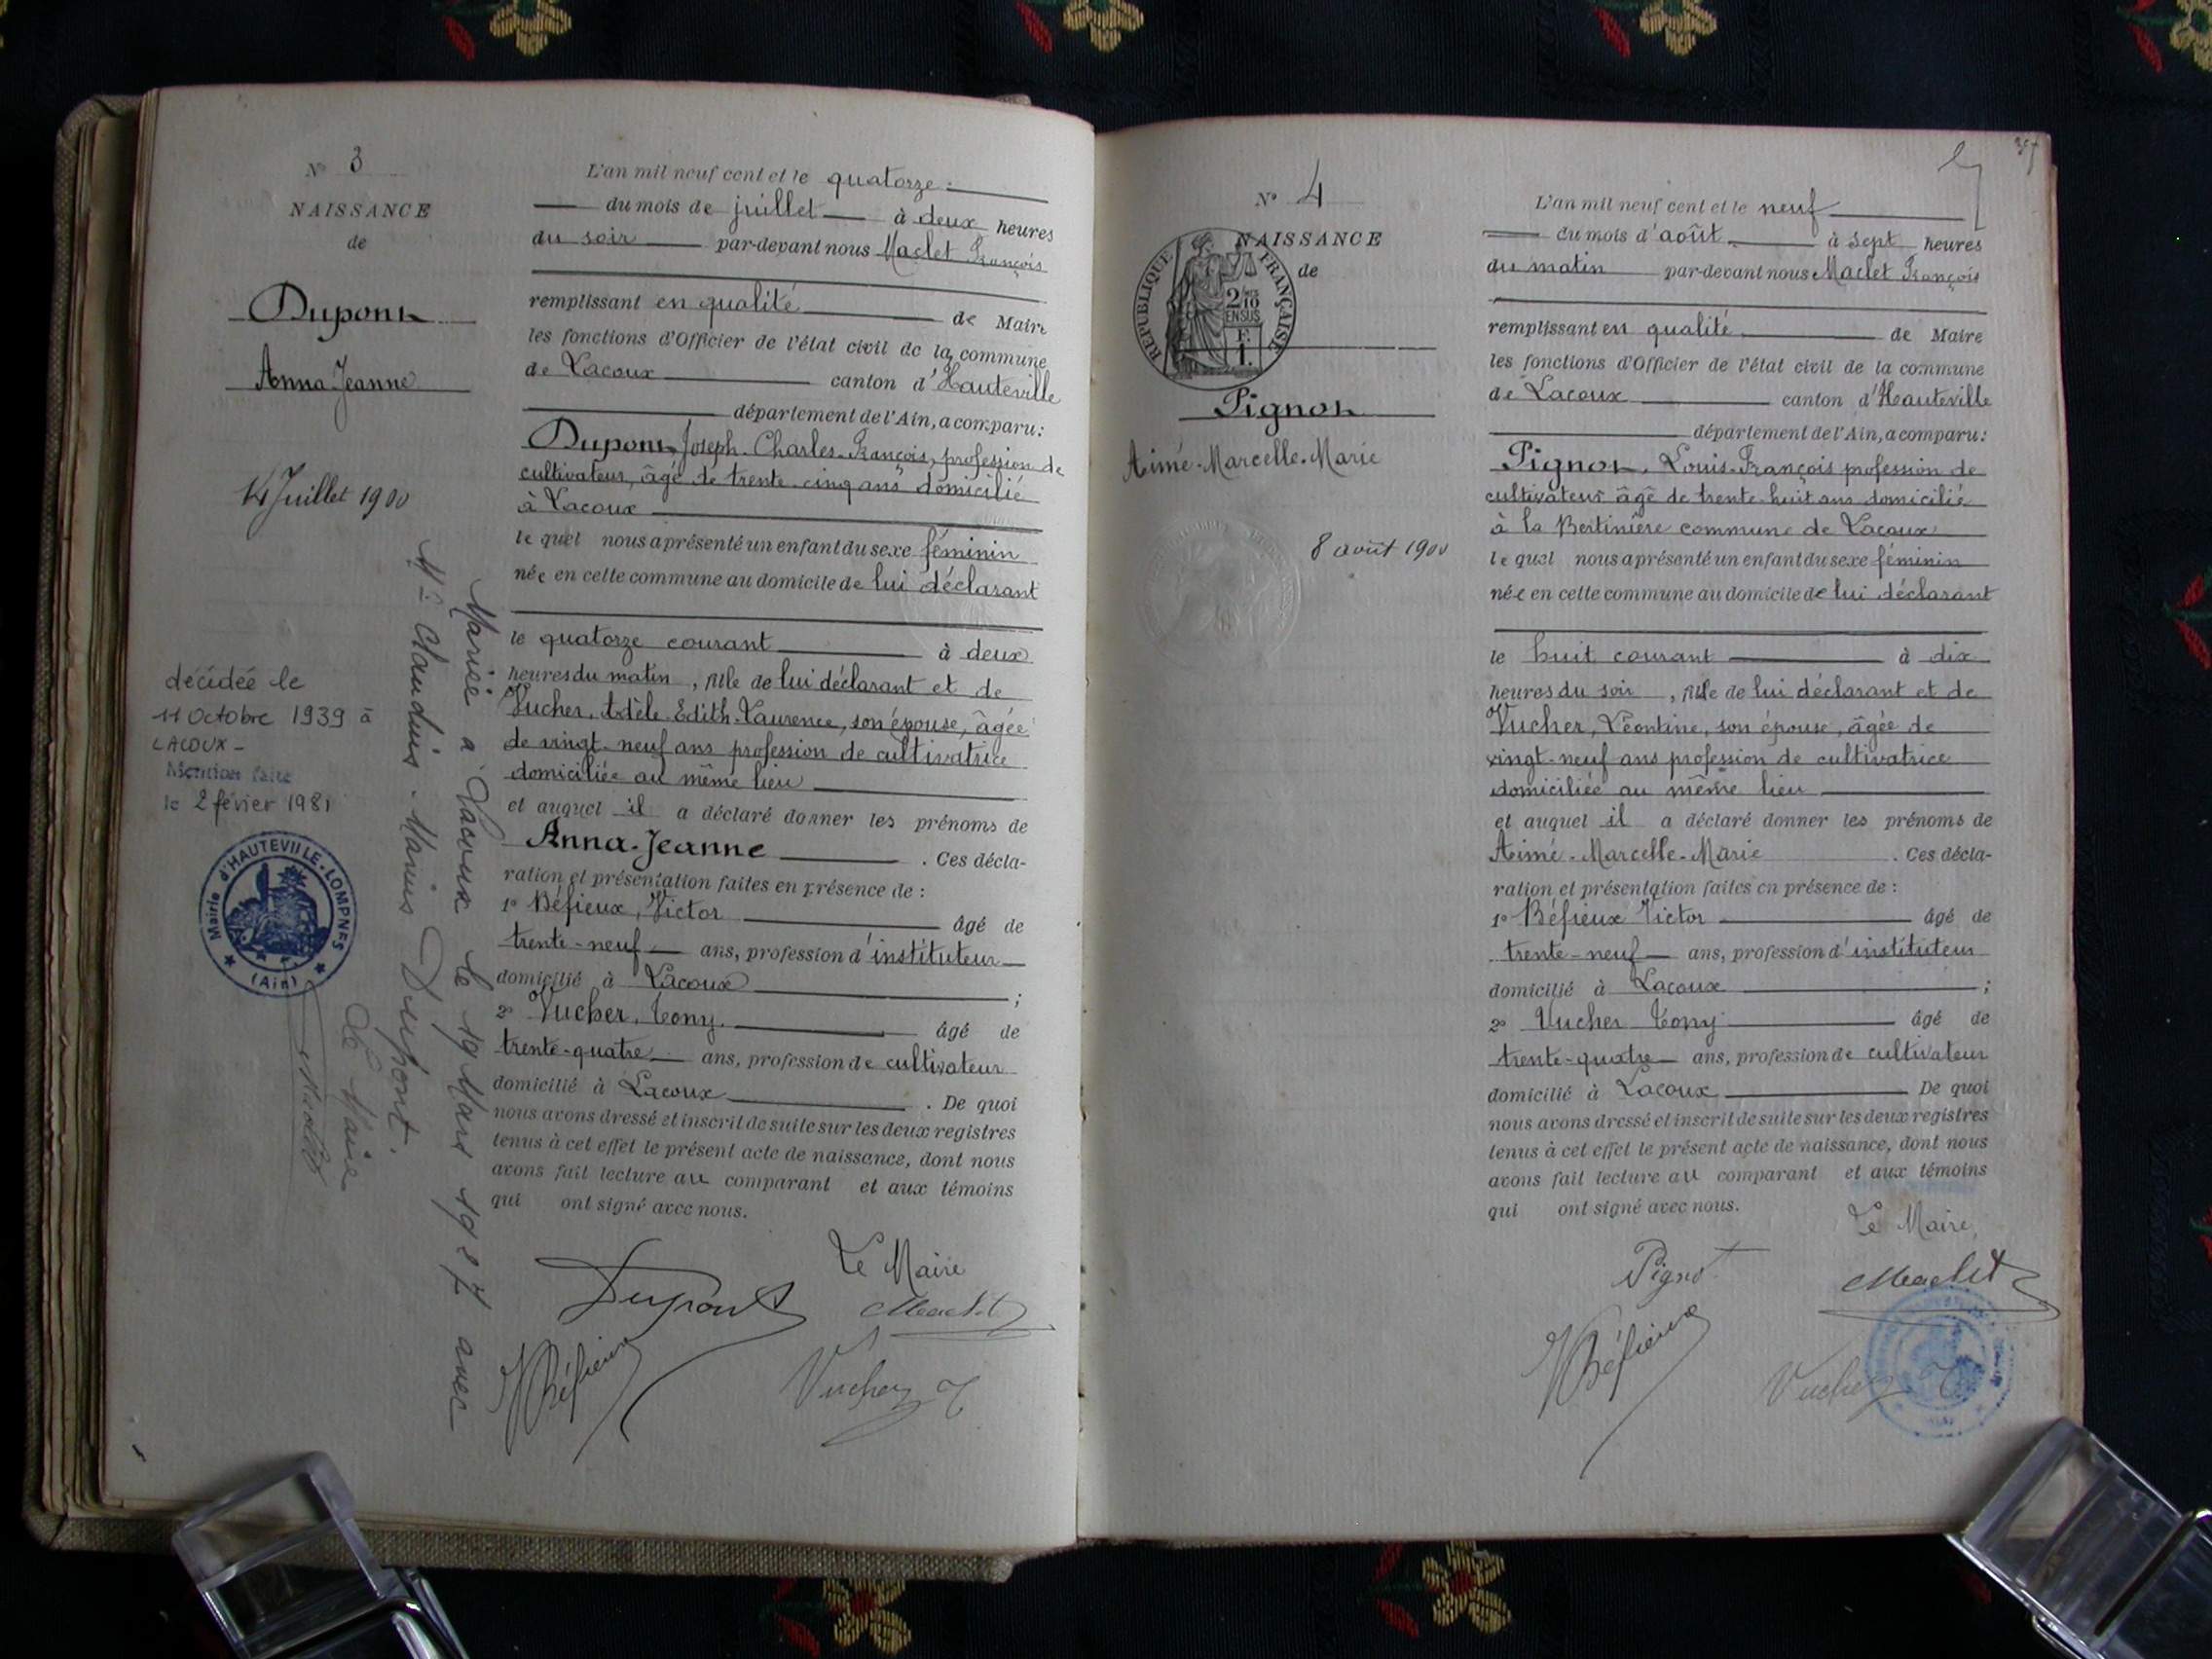 N° 3
NAISSANCE
de
Dupont
Anna Jeanne
14 Juillet 1900
décédée le
11 Octobre 1939 à
LACOUX -
Mention faite
le 2 février 1981
Mairie d'HAUTEVILLE-LOMPNES
(Ain)
Mariée à Lacoux le 19 Mars 1927 avec
Mr Claudius-Marius Dupont.
Le Maire
Maclet
L'an mil neuf cent et le quatorze
du mois de juillet à deux heures
du soir par-devant nous Maclet François
remplissant en qualité de Maire
les fonctions d'Officier de l'état civil de la commune
de Lacoux canton d'Hauteville
département de l'Ain, a comparu:
Dupont, Joseph-Charles-François, profession de
cultivateur, âgé de trente-cinq ans domicilié
à Lacoux
lequel nous a présenté un enfant du sexe féminin
née en cette commune au domicile de lui déclarant
le quatorze courant à deux
heures du matin, fille de lui déclarant et de
Vucher, Adèle-Edith-Laurence, son épouse, âgée
de vingt-neuf ans profession de cultivatrice
domiciliée au même lieu
et auquel il a déclaré donner les prénoms de
Anna-Jeanne. Ces décla-
ration et présentation faites en présence de :
1° Béfieux, Victor âgé de
trente-neuf ans, profession d'instituteur
domicilié à Lacoux ;
2° Vucher, Tony. âgé de
trente-quatre ans, profession de cultivateur
domicilié à Lacoux. De quoi
nous avons dressé et inscrit de suite sur les deux registres
tenus à cet effet le présent acte de naissance, dont nous
avons fait lecture au comparant et aux témoins
qui ont signé avec nous.
Le Maire
Dupont
Maclet
VBéfieux
Vucher T
N° 4
NAISSANCE
de
REPUBLIQUE FRANÇAISE
2/10 EN SUS
F.
1.
Pignon
Aimé-Marcelle-Marie
8 août 1900
L'an mil neuf cent et le neuf
du mois d'août à sept heures
du matin par-devant nous Maclet François
remplissant en qualité de Maire
les fonctions d'Officier de l'état civil de la commune
de Lacoux canton d'Hauteville
département de l'Ain, a comparu:
Pignon, Louis-François profession de
cultivateur âgé de trente-huit ans domicilié
à la Bertinière commune de Lacoux
lequel nous a présenté un enfant du sexe féminin
née en cette commune au domicile de lui déclarant
le huit courant à dix
heures du soir, fille de lui déclarant et de
Vucher, Léontine, son épouse, âgée de
vingt-neuf ans profession de cultivatrice
domiciliée au même lieu
et auquel il a déclaré donner les prénoms de
Aimé-Marcelle-Marie. Ces décla-
ration et présentation faites en présence de :
1° Béfieux Victor âgé de
trente-neuf ans, profession d'instituteur
domicilié à Lacoux ;
2° Vucher Tony âgé de
trente-quatre ans, profession de cultivateur
domicilié à Lacoux De quoi
nous avons dressé et inscrit de suite sur les deux registres
tenus à cet effet le présent acte de naissance, dont nous
avons fait lecture au comparant et aux témoins
qui ont signé avec nous.
Le Maire,
Pignon
Maclet
VBéfieux
Vucher T